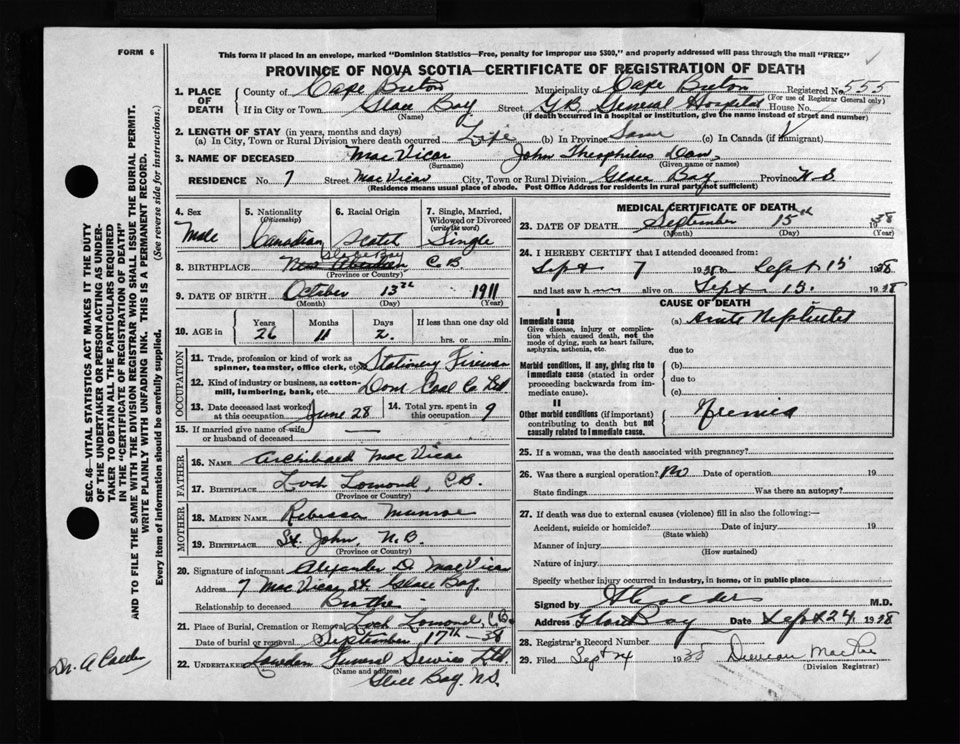 FORM 6
This form if placed in an envelope, marked "Dominion Statistics—Free, penalty for improper use $300," and properly addressed will pass through the mail "FREE"
PROVINCE OF NOVA SCOTIA—CERTIFICATE OF REGISTRATION OF DEATH
1. PLACE OF DEATH County of Cape Breton Municipality of Cape Breton Registered No. 555
(For use of Registrar General only)
If in City or Town Glace Bay Street G.B. General Hospital House No.
(Name) (If death occurred in a hospital or institution, give the name instead of street and number)
2. LENGTH OF STAY (in years, months and days)
(a) In City, Town or Rural Division where death occurred Life (b) In Province Same (c) In Canada (if immigrant)
3. NAME OF DECEASED MacVicar John Theophilus Dan
(Surname) (Given name or names)
RESIDENCE No. 7 Street MacVicar City, Town or Rural Division Glace Bay Province N.S.
(Residence means usual place of abode. Post Office Address for residents in rural parts not sufficient)
4. Sex Male
5. Nationality (Citizenship) Canadian
6. Racial Origin Scotch
7. Single, Married, Widowed or Divorced (write the word) Single
8. BIRTHPLACE Glace Bay New Aberdeen C.B.
(Province or Country)
9. DATE OF BIRTH October 13th 1911
(Month) (Day) (Year)
10. AGE in Years 26 Months 11 Days 2 If less than one day old
hrs. or min.
OCCUPATION
11. Trade, profession or kind of work as spinner, teamster, office clerk, etc. Stationary Fireman
12. Kind of industry or business, as cotton-mill, lumbering, bank, etc. Dom Coal Co Ltd
13. Date deceased last worked at this occupation June 28
14. Total yrs. spent in this occupation 9
15. If married give name of wife or husband of deceased —
FATHER
16. NAME Archibald MacVicar
17. BIRTHPLACE Loch Lomond, C.B.
(Province or Country)
MOTHER
18. MAIDEN NAME Rebecca Munroe
19. BIRTHPLACE St. John, N.B.
(Province or Country)
20. Signature of informant Alexander D. MacVicar
Address 7 MacVicar St. Glace Bay.
Relationship to deceased Brother
21. Place of Burial, Cremation or Removal Loch Lomond, C.B.
Date of burial or removal September 17th — 38
22. Undertaker Funeral Service Ltd.
(Name and address)
Glace Bay. N.S.
MEDICAL CERTIFICATE OF DEATH
23. DATE OF DEATH September 15th 1938
(Month) (Day) (Year)
24. I HEREBY CERTIFY that I attended deceased from:
Sept 7 1938 to Sept 15 1938
and last saw him alive on Sept 15. 1938
CAUSE OF DEATH
I
Immediate cause (a) Acute Nephritis
Give disease, injury or complication which caused death, not the mode of dying, such as heart failure, asphyxia, asthenia, etc.
due to
Morbid conditions, if any, giving rise to immediate cause (stated in order proceeding backwards from immediate cause).
(b)
due to
(c)
II
Other morbid conditions (if important) contributing to death but not causally related to immediate cause. Uremia
25. If a woman, was the death associated with pregnancy?
26. Was there a surgical operation? No Date of operation 19
State findings Was there an autopsy?
27. If death was due to external causes (violence) fill in also the following:—
Accident, suicide or homicide? Date of injury 19
(State which)
Manner of injury
(How sustained)
Nature of injury
Specify whether injury occurred in industry, in home, or in public place
Signed by M.D.
Address Glace Bay Date Sept 24, 1938
28. Registrar's Record Number
29. Filed Sept 24 1938 Duncan
(Division Registrar)
SEC. 46—VITAL STATISTICS ACT MAKES IT THE DUTY
OF THE UNDERTAKER OR PERSON ACTING AS UNDER-
TAKER TO OBTAIN ALL THE PARTICULARS REQUIRED
IN THE "CERTIFICATE OF REGISTRATION OF DEATH"
AND TO FILE THE SAME WITH THE DIVISION REGISTRAR WHO SHALL ISSUE THE BURIAL PERMIT.
WRITE PLAINLY WITH UNFADING INK. THIS IS A PERMANENT RECORD.
Every item of information should be carefully supplied. (See reverse side for instructions.)
Dr. A